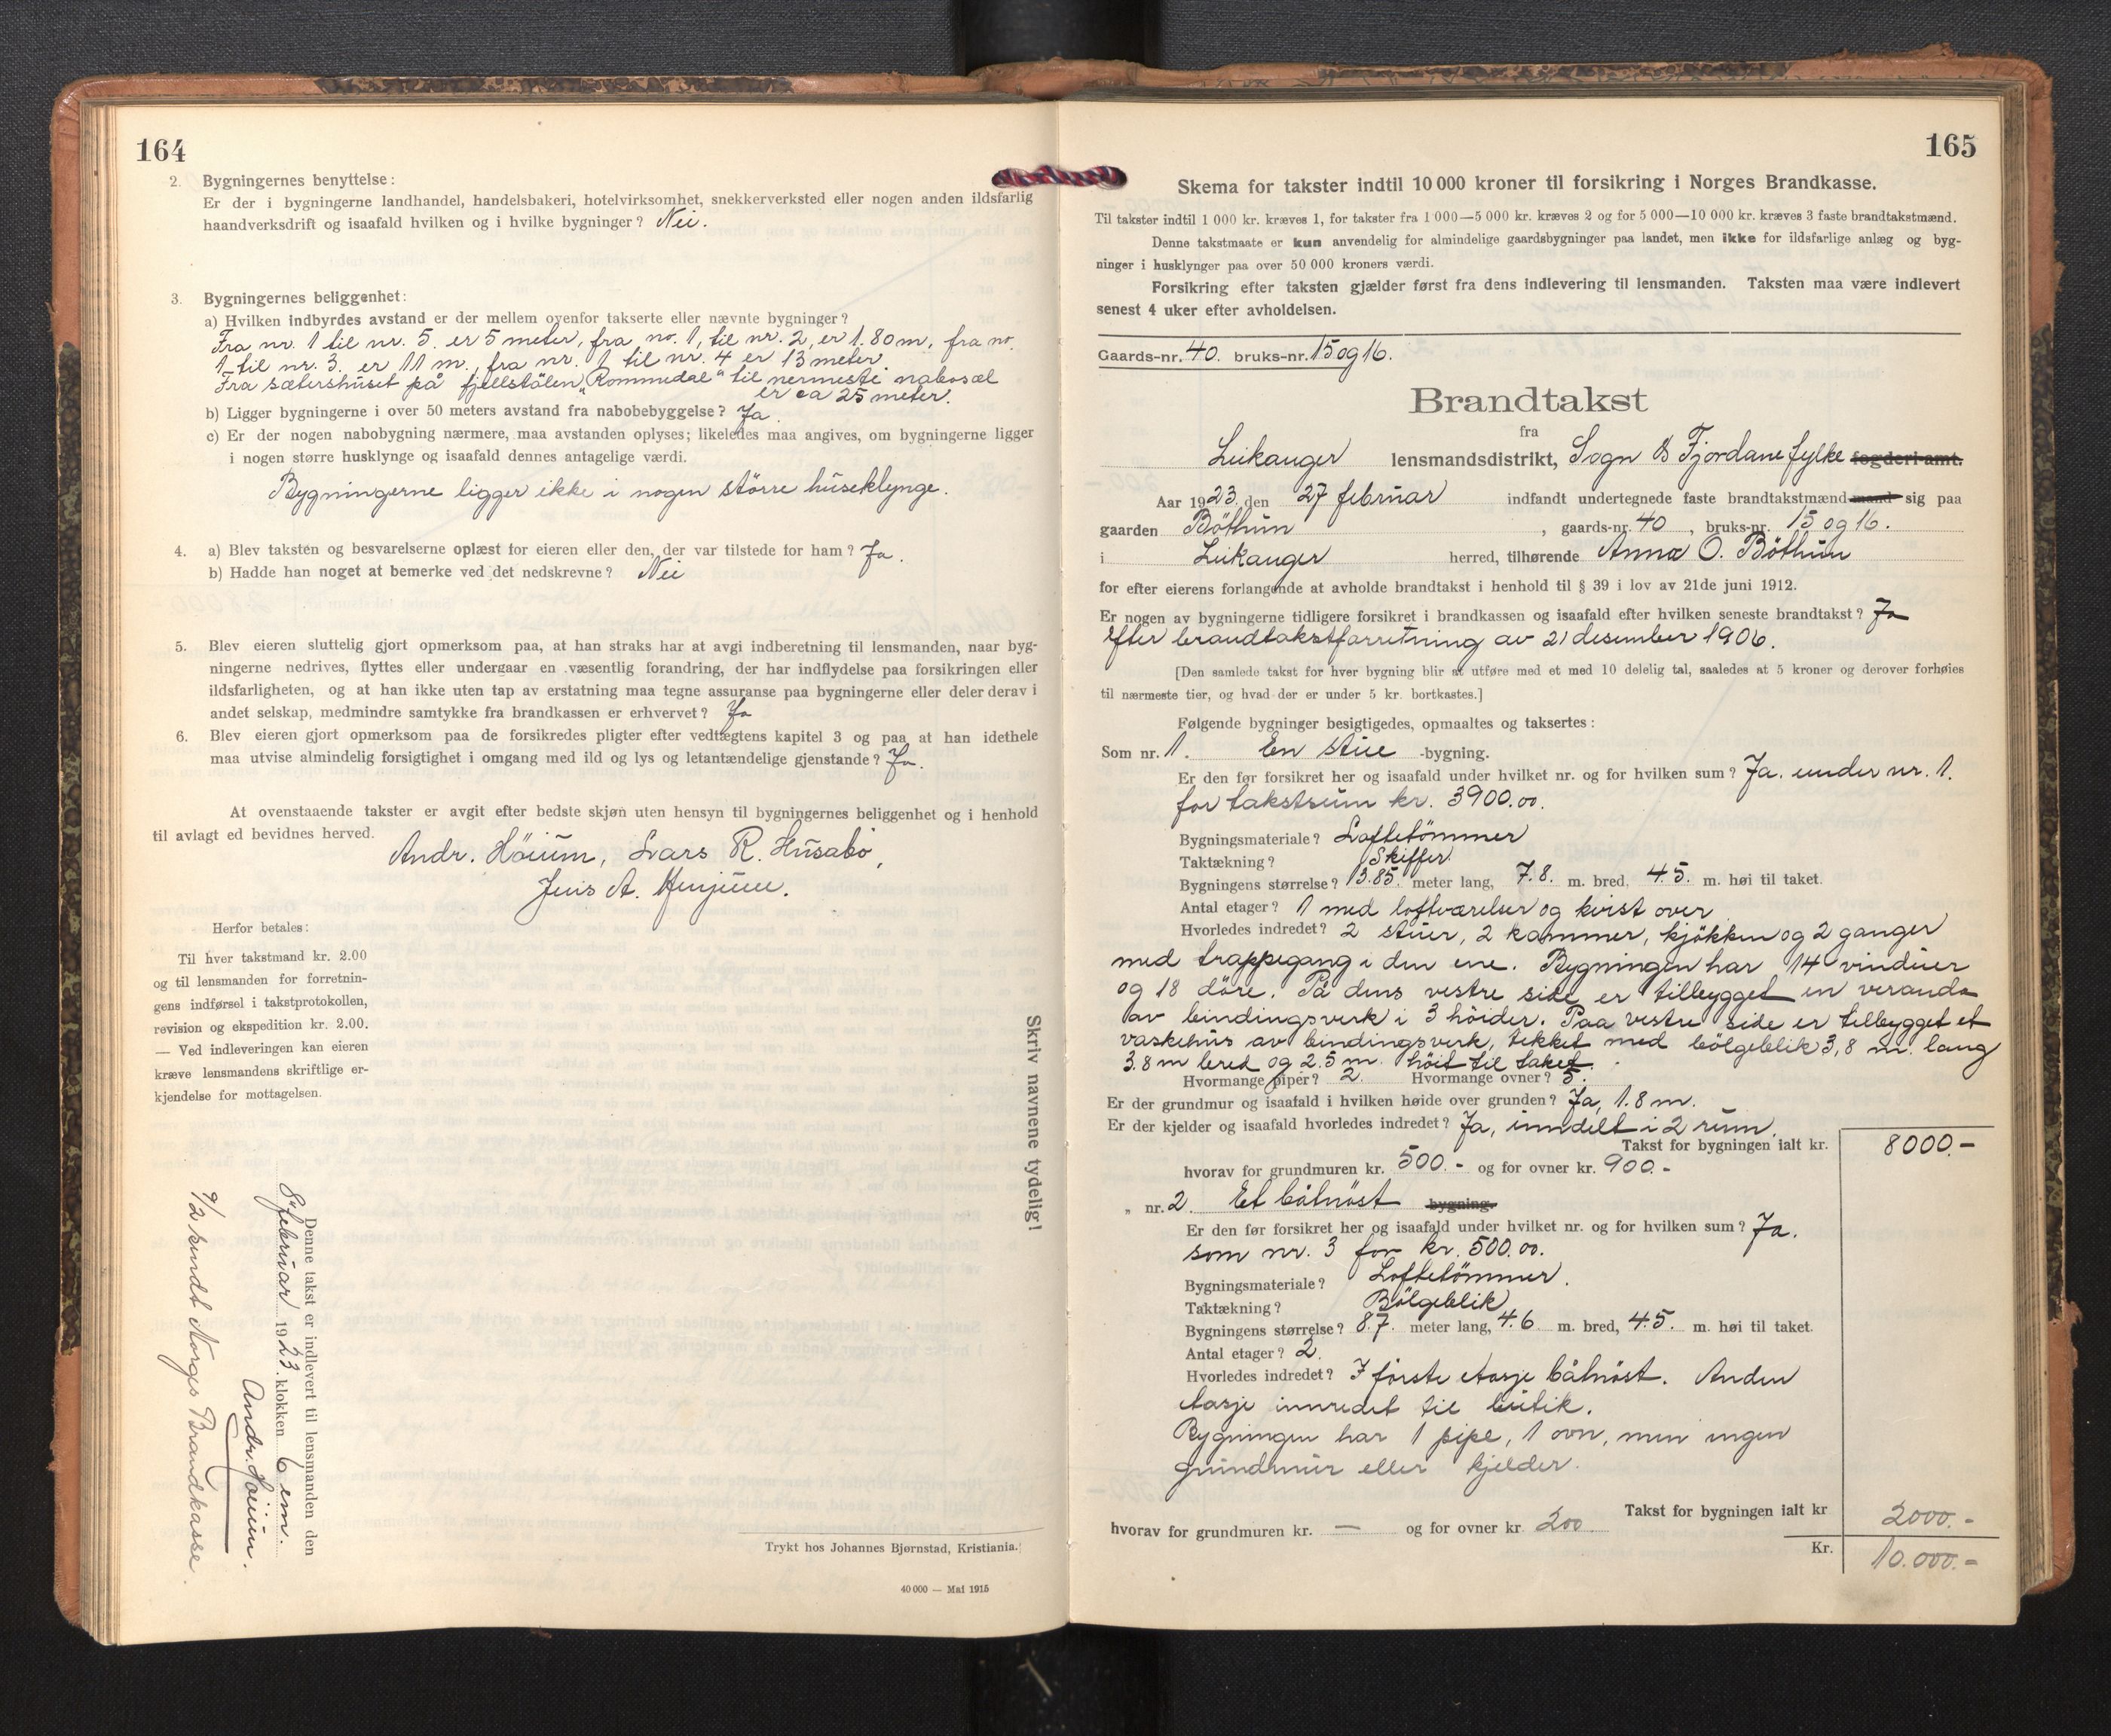 164
2. Bygningernes benyttelse:
Er der i bygningerne landhandel, handelsbakeri, hotelvirksomhet, snekkerverksted eller nogen anden ildsfarlig
haandverksdrift og isaafald hvilken og i hvilke bygninger? Nei.
3. Bygningernes beliggenhet:
a) Hvilken indbyrdes avstand er der mellem ovenfor takserte eller nævnte bygninger?
Fra nr. 1 til nr. 5. er 5 meter, fra no. 1, til nr. 2, er 1.80 m, fra no.
1 til nr. 3. er 11 m, fra nr. 1 til nr. 4 er 13 meter.
Fra sætershuset på fjellstölen „Rommedal" til nermeste nabosæl
er ca 25 meter.
b) Ligger bygningerne i over 50 meters avstand fra nabobebyggelse? Ja.
c) Er der nogen nabobygning nærmere, maa avstanden oplyses; likeledes maa angives, om bygningerne ligger
i nogen større husklynge og isaafald dennes antagelige værdi.
Bygningerne ligger ikke i nogen större huseklynge.
4. a) Blev taksten og besvarelserne oplæst for eieren eller den, der var tilstede for ham? Ja.
b) Hadde han noget at bemerke ved det nedskrevne? Nei
5. Blev eieren sluttelig gjort opmerksom paa, at han straks har at avgi indberetning til lensmanden, naar byg-
ningerne nedrives, flyttes eller undergaar en væsentlig forandring, der har indflydelse paa forsikringen eller
ildsfarligheten, og at han ikke uten tap av erstatning maa tegne assuranse paa bygningerne eller deler derav i
andet selskap, medmindre samtykke fra brandkassen er erhvervet? Ja
6. Blev eieren gjort opmerksom paa de forsikredes pligter efter vedtægtens kapitel 3 og paa at han idethele
maa utvise almindelig forsigtighet i omgang med ild og lys og letantændelige gjenstande? Ja.
At ovenstaaende takster er avgit efter bedste skjøn uten hensyn til bygningernes beliggenhet og i henhold
til avlagt ed bevidnes herved.
Andr. Höium, Lars R. Husabö,
Jens A. Henjum.
Herfor betales:
Til hver takstmand kr. 2.00
og til lensmanden for forretnin-
gens indførsel i takstprotokollen,
revision og ekspedition kr. 2.00.
— Ved indleveringen kan eieren
kræve lensmandens skriftlige er-
kjendelse for mottagelsen.
Skriv navnene tydelig!
Denne takst er indlevert til lensmanden den
8 februar 1923. klokken 6 em.
Andr. Höium.
9/2 sendt Norges Brandkasse.
Trykt hos Johannes Bjørnstad, Kristiania.
40 000 — Mai 1915
165
Skema for takster indtil 10 000 kroner til forsikring i Norges Brandkasse.
Til takster indtil 1 000 kr. kræves 1, for takster fra 1 000—5 000 kr. kræves 2 og for 5 000—10 000 kr. kræves 3 faste brandtakstmænd.
Denne takstmaate er kun anvendelig for almindelige gaardsbygninger paa landet, men ikke for ildsfarlige anlæg og byg-
ninger i husklynger paa over 50 000 kroners værdi.
Forsikring efter taksten gjælder først fra dens indlevering til lensmanden. Taksten maa være indlevert
senest 4 uker efter avholdelsen.
Gaards-nr. 40. bruks-nr. 15 og 16.
Brandtakst
fra
Leikanger lensmandsdistrikt, Sogn & Fjordane fylke fogderi-amt.
Aar 1923. den 27 februar indfandt undertegnede faste brandtakstmænd mand sig paa
gaarden Böthun, gaards-nr. 40, bruks-nr. 15 og 16.
i Leikanger herred, tilhørende Anna O. Böthun
for efter eierens forlangende at avholde brandtakst i henhold til § 39 i lov av 21de juni 1912.
Er nogen av bygningerne tidligere forsikret i brandkassen og isaafald efter hvilken seneste brandtakst? Ja
efter brandtakstforretning av 21 desember 1906.
[Den samlede takst for hver bygning blir at utføre med et med 10 delelig tal, saaledes at 5 kroner og derover forhøies
til nærmeste tier, og hvad der er under 5 kr. bortkastes.]
Følgende bygninger besigtigedes, opmaaltes og taksertes:
Som nr. 1. En stue -bygning.
Er den før forsikret her og isaafald under hvilket nr. og for hvilken sum? Ja. under nr. 1.
for takstsum kr. 3900.00.
Bygningsmateriale? Loftetömmer
Taktækning? Skiffer.
Bygningens størrelse? 13.85. meter lang, 7.8. m. bred, 4.5. m. høi til taket.
Antal etager? 1 med loftværelser og kvist over
Hvorledes indredet? 2 stuer, 2 kammer, kjökken og 2 ganger
med trappegang i den ene. Bygningen har 14 vinduer
og 18 döre. På dens vestre side er tilbygget en veranda
av bindingsverk i 3 höider. Paa vestre side er tilbygget et
vaskehus av bindingsverk, tekket med bölgeblik 3,8 m. lang
3.8 m bred og 2.5 m. höit til taket.
Hvormange piper? 2. Hvormange ovner? 5.
Er der grundmur og isaafald i hvilken høide over grunden? Ja, 1.8 m.
Er der kjelder og isaafald hvorledes indredet? Ja, inndelt i 2 rum.
Takst for bygningen ialt kr. 8000.-
hvorav for grundmuren kr. 500.- og for ovner kr. 900.-
„ nr. 2. Et båtnöst bygning.
Er den før forsikret her og isaafald under hvilket nr. og for hvilken sum? Ja.
som nr. 3 for kr. 500.00.
Bygningsmateriale? Loftetömmer.
Taktækning? Bölgeblik
Bygningens størrelse? 8.7. meter lang, 4.6 m. bred, 4.5. m. høi til taket.
Antal etager? 2.
Hvorledes indredet? I förste etasje båtnöst. Anden
etasje innredet til butik.
Bygningen har 1 pipe, 1 ovn, men ingen
grundmur eller kjelder.
Takst for bygningen ialt kr 2000.-
hvorav for grundmuren kr. — og for ovner kr. 200.
Kr. 10.000.-